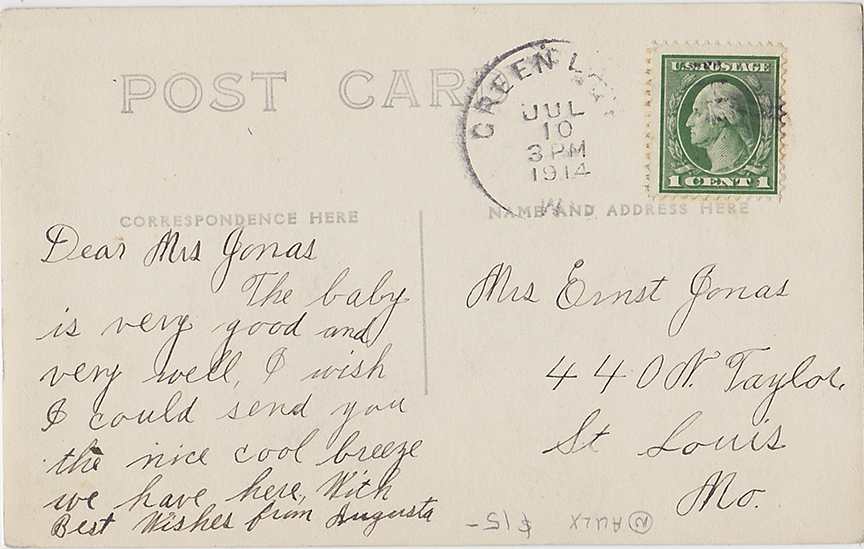 POST CAR
GREEN LA
JUL
10
3 PM
1914
W
U.S. POSTAGE
1 CENT 1
CORRESPONDENCE HERE
NAME AND ADDRESS HERE
Dear Mrs Jonas
The baby
is very good and
very well, I wish
I could send you
the nice cool breeze
we have here, With
Best Wishes from Augusta
Mrs Ernst Jonas
440 N. Taylor,
St Louis
Mo.
$15-